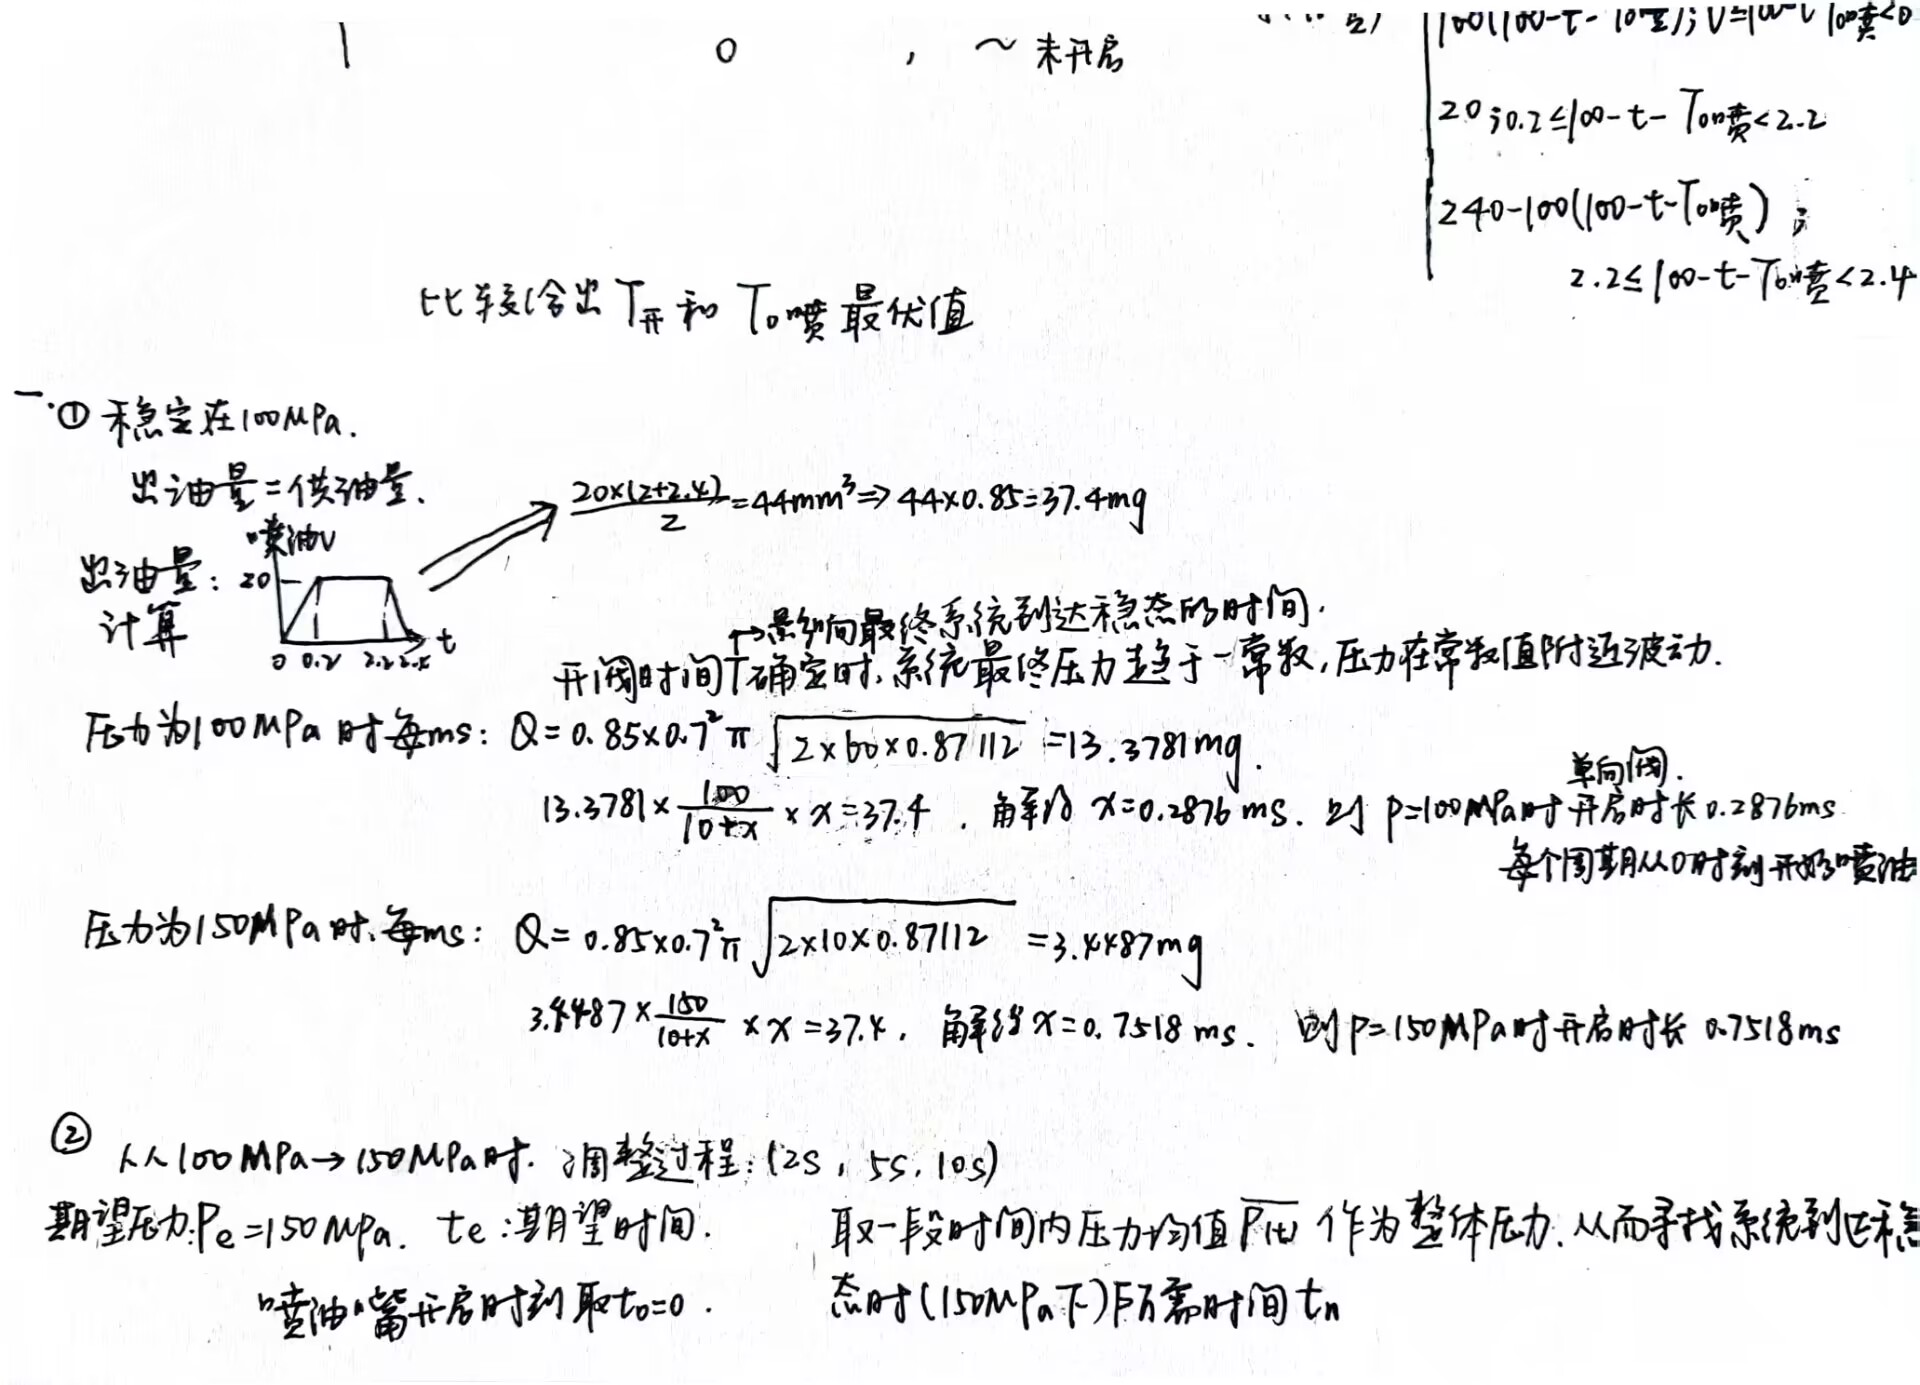 0 , ~ 未开启
100(100-t-T0喷); 0≤100-t-T0喷<0
20; 0.2≤100-t-T0喷<2.2
240-100(100-t-T0喷);
2.2≤100-t-T0喷<2.4
比较给出T开和T0喷最优值
一.① 稳定在100MPa.
出油量=供油量.
20×(2+2.4)/2=44mm³⇒44×0.85=37.4mg
喷油V
出油量: 20
计算
0 0.2 2.2 2.4 t
↦影响最终系统到达稳态的时间.
开阀时间T确定时,系统最终压力趋于一常数,压力在常数值附近波动.
压力为100MPa时每ms: Q=0.85×0.7²π√(2×60×0.87112)=13.3781mg.
单向阀.
13.3781×100/(10+x)×x=37.4. 解得x=0.2876ms. 则P=100MPa时开启时长0.2876ms
每个周期从0时刻开始喷油
压力为150MPa时,每ms: Q=0.85×0.7²π√(2×10×0.87112)=3.4487mg
3.4487×150/(10+x)×x=37.4. 解得x=0.7518ms. 则P=150MPa时开启时长0.7518ms
②
从100MPa→150MPa时. 调整过程:(2s, 5s, 10s)
期望压力:Pe=150MPa. te:期望时间. 取一段时间内压力均值P(t)作为整体压力.从而寻找系统到达稳
喷油嘴开启时刻取t0=0. 态时(150MPa下)所需时间tn